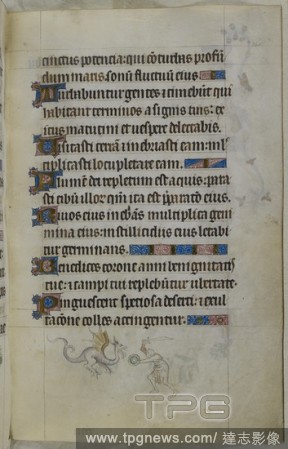 cinctus potentia: qui cōturbas profū
dum maris. sonū fluctuū eius
Turbabuntur gentes ⁊ timebūt qui
habitant terminos a signis tuis: ex
itus matutini et vespere delectabis.
Uisitasti terrā ⁊ inebriasti eam: mul
tiplicasti locupletare eam.
Flumē dei repletum est aquis: parā
sti cibū illoꝝ qm̄ ita est p̄paratō eius.
Riuos eius inebriās multiplica geni
mina eius: in stillicidiis eius letabi
tur germinans.
Benedices corone anni benignitatis
tue: ⁊ campi tui replebūtur ubertate.
Pinguescent speciosa deserti: ⁊ exul
tacōne colles accingentur.
TPG
www.tpgnews.com/ 達志影像